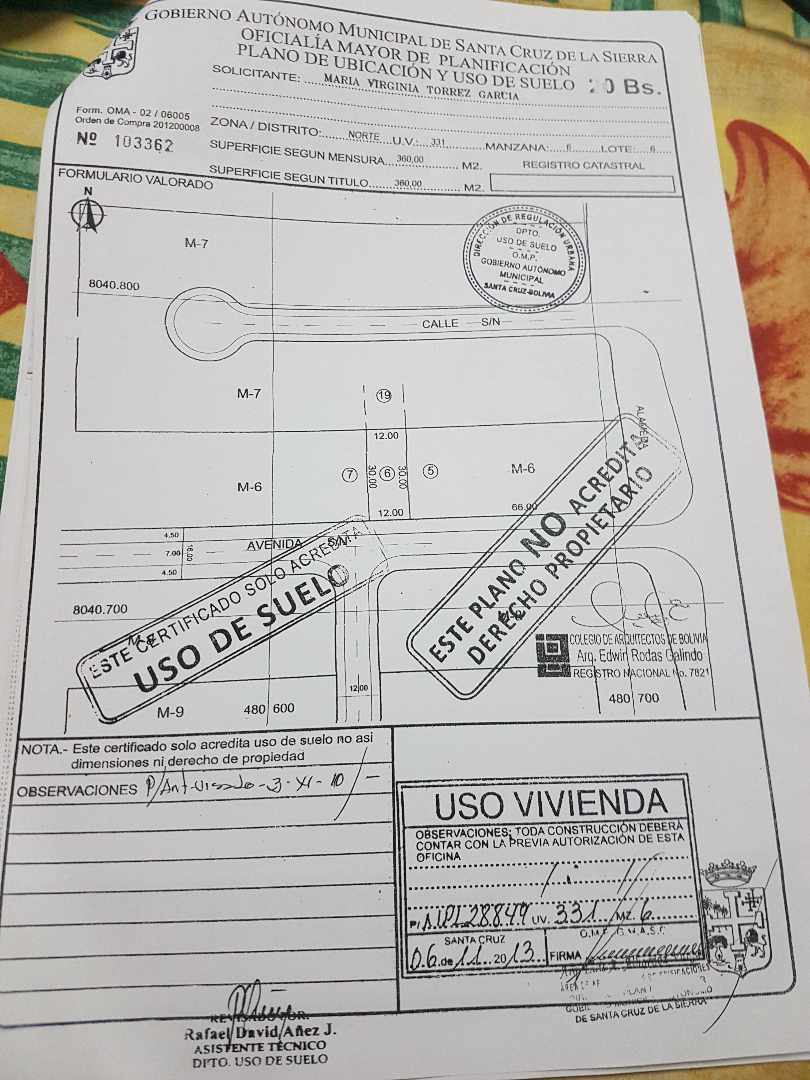 GOBIERNO AUTÓNOMO MUNICIPAL DE SANTA CRUZ DE LA SIERRA
OFICIALÍA MAYOR DE PLANIFICACIÓN
PLANO DE UBICACIÓN Y USO DE SUELO 20 Bs.
SOLICITANTE: MARIA VIRGINIA TORREZ GARCIA
Form. OMA - 02 / 06005
Orden de Compra 201200008
Nº 103362
ZONA / DISTRITO: NORTE U.V.: 331 MANZANA: 6 LOTE: 6
SUPERFICIE SEGUN MENSURA 360,00 M2. REGISTRO CATASTRAL
SUPERFICIE SEGUN TITULO 360,00 M2.
FORMULARIO VALORADO
N
M-7
DIRECCIÓN DE REGULACIÓN URBANA
DPTO.
USO DE SUELO
O.M.P.
GOBIERNO AUTÓNOMO
MUNICIPAL
SANTA CRUZ-BOLIVIA
8040.800
CALLE S/N
M-7
19
ALAMEDA
12.00
7 30,00 6 30,00 5
M-6
M-6
12.00
66.00
4.50
7.00
4.50
16.00
AVENIDA S/N
ESTE CERTIFICADO SOLO ACREDITA
USO DE SUELO
ESTE PLANO NO ACREDITA
DERECHO PROPIETARIO
8040.700
COLEGIO DE ARQUITECTOS DE BOLIVIA
Arq. Edwin Rodas Galindo
REGISTRO NACIONAL No. 7821
12,00
M-9
480 600
480 700
NOTA.- Este certificado solo acredita uso de suelo no asi
dimensiones ni derecho de propiedad
OBSERVACIONES P/Ant-visado-3-XI-10 -
USO VIVIENDA
OBSERVACIONES; TODA CONSTRUCCIÓN DEBERÁ
CONTAR CON LA PREVIA AUTORIZACIÓN DE ESTA
OFICINA
28849 UV. 331 MZ. 6
SANTA CRUZ
06 de 11 2013 FIRMA
DE SANTA CRUZ DE LA SIERRA
Rafael David Añez J.
ASISTENTE TÉCNICO
DPTO. USO DE SUELO